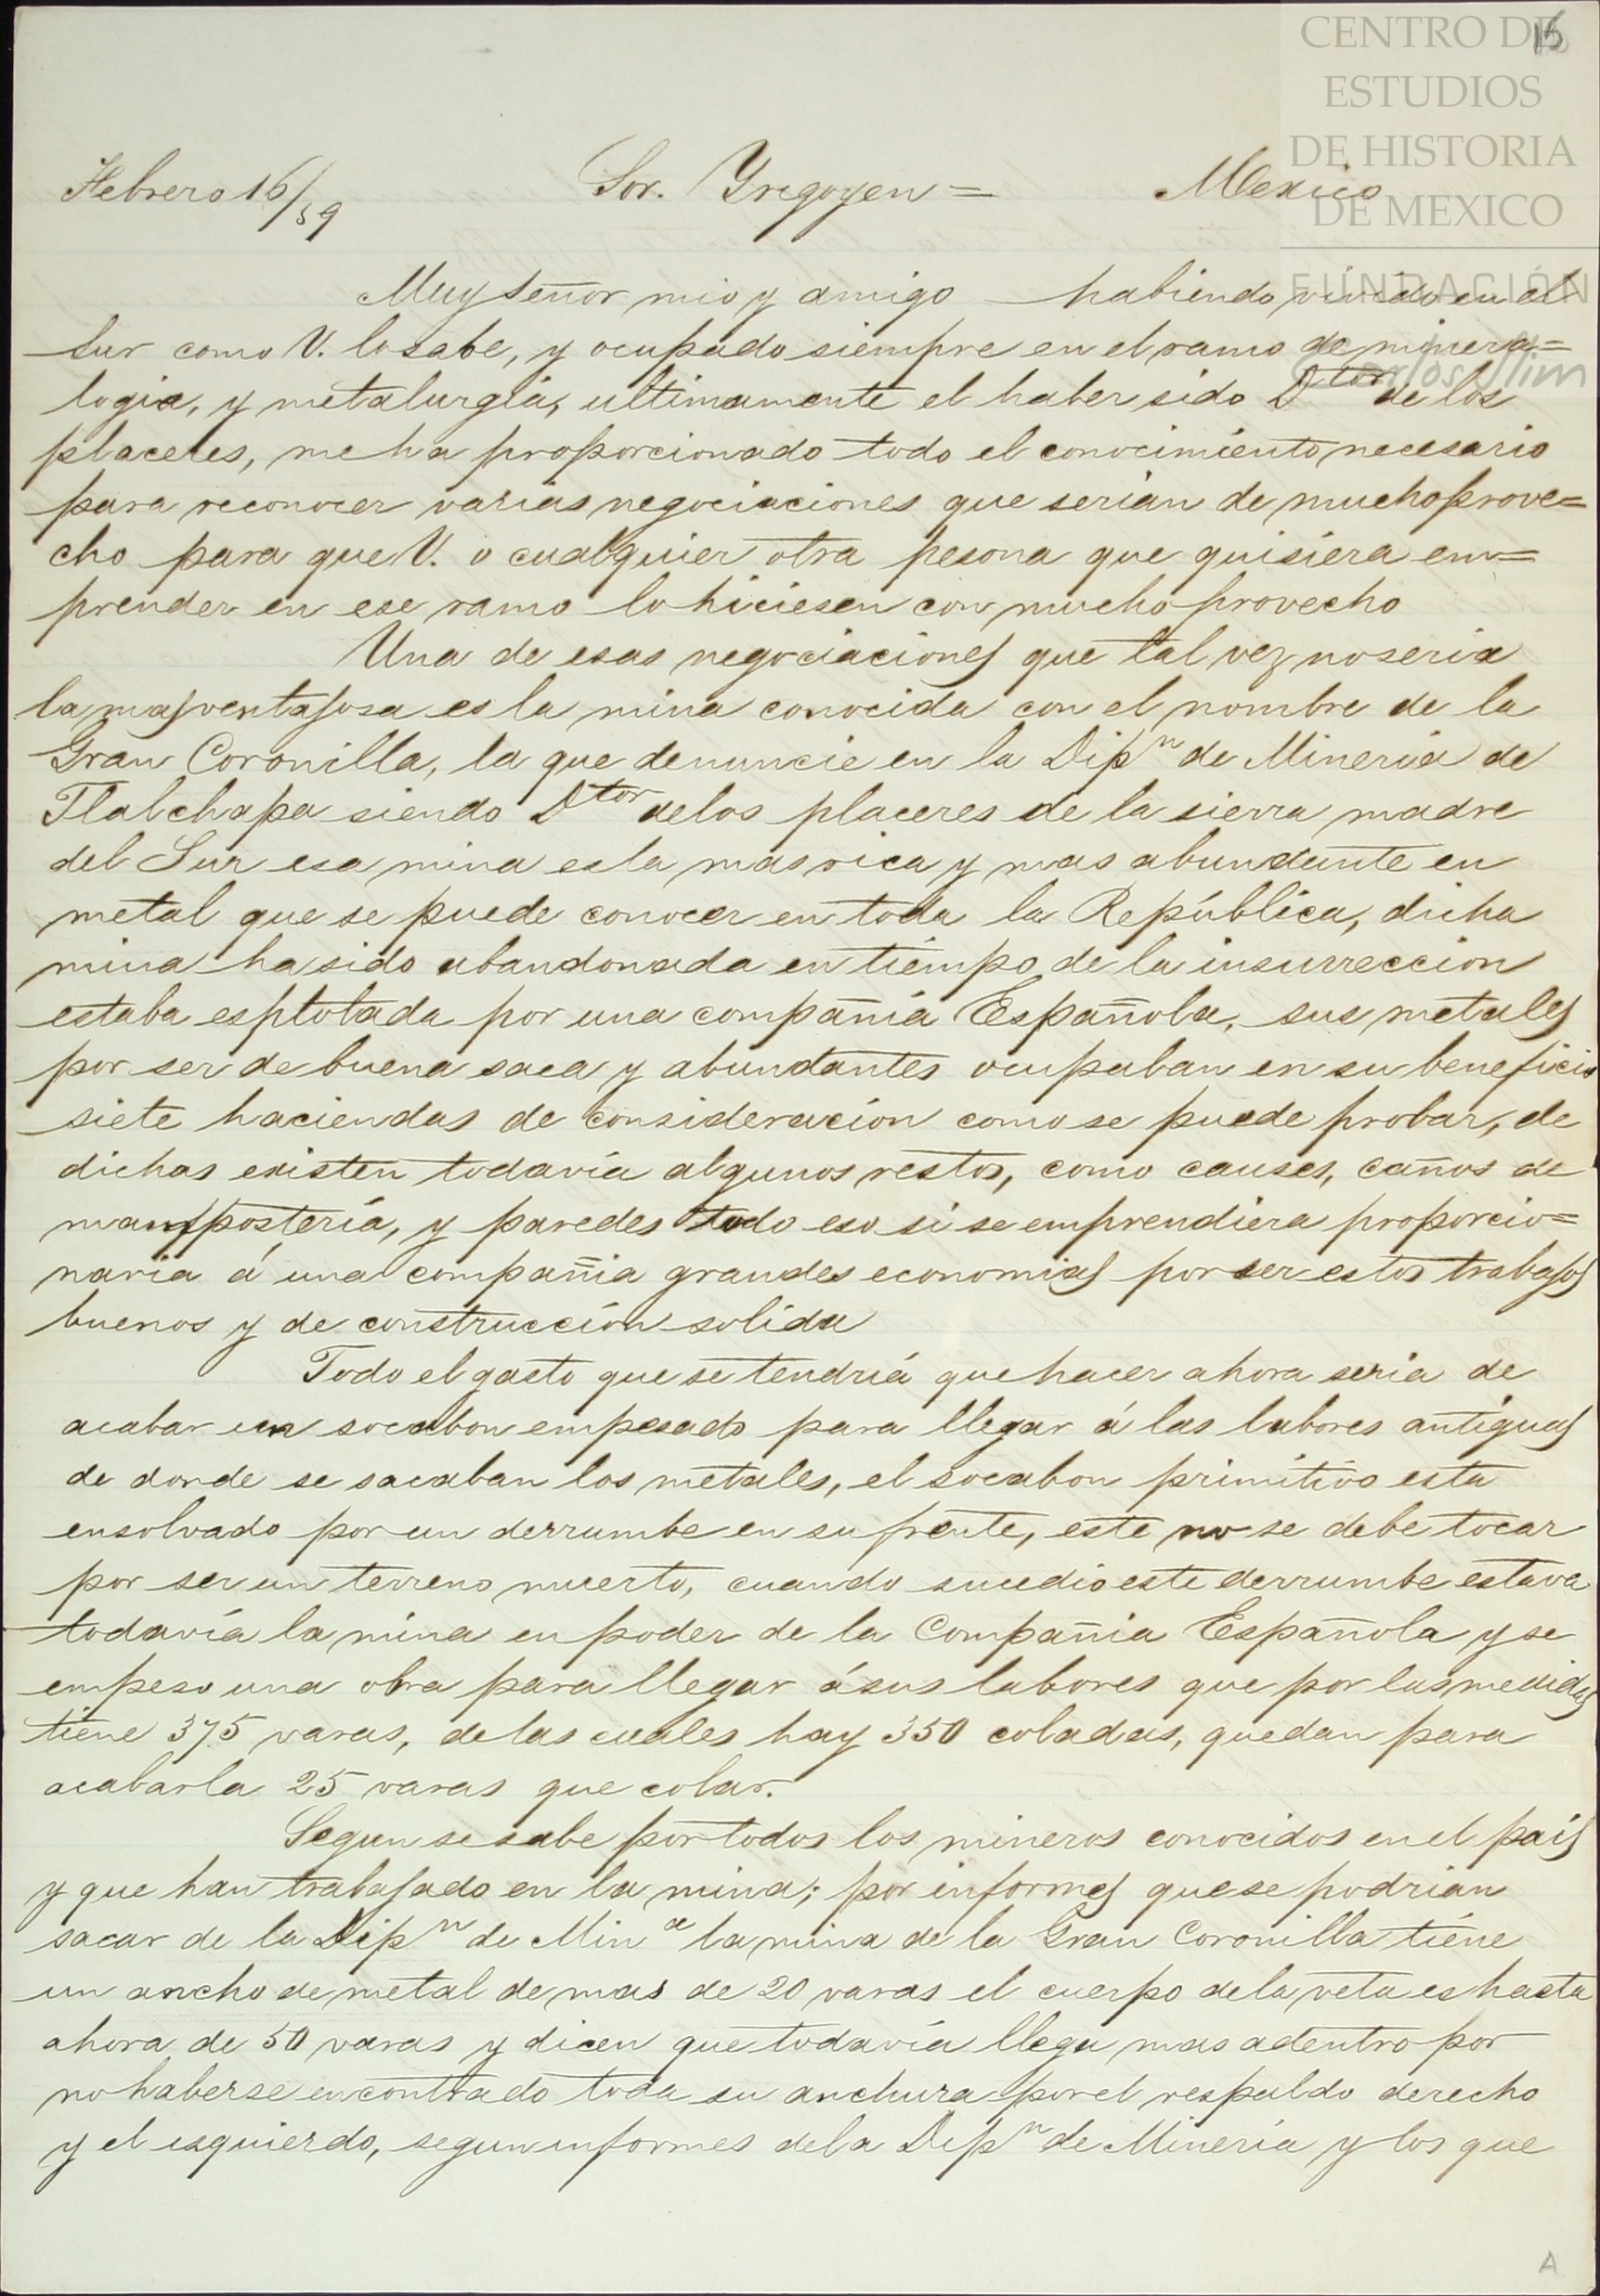 15
CENTRO DE
ESTUDIOS
DE HISTORIA
DE MEXICO
FUNDACIÓN
Carlos Slim
Febrero 16/59 Sor. Yrigoyen = Mexico
Muy señor mio y amigo habiendo vivido en el
Sur como V. lo sabe, y ocupado siempre en el ramo de minera=
logia, y metalurgia, ultimamente el haber sido Dtor de los
placeres, me ha proporcionado todo el conocimiento necesario
para reconocer varias negociaciones que serian de mucho prove=
cho para que V. o cualquier otra pesona que quisiera em=
prender en ese ramo lo hiciesen con mucho provecho
Una de esas negociaciones que tal vez no seria
la mas ventajosa es la mina conocida con el nombre de la
Gran Coronilla, la que denuncie en la Dipn de Mineria de
Tlalchapa siendo Dtor de los placeres de la sierra madre
del Sur esa mina es la mas rica y mas abundante en
metal que se puede conocer en toda la República, dicha
mina ha sido abandonada en tiempo de la insurreccion
estaba esplotada por una compañia Española, sus metales
por ser de buena saca y abundantes ocupaban en su beneficio
siete haciendas de consideracion como se puede probar, de
dichas existen todavía algunos restos, como causes, caños de
mampostería, y paredes todo eso si se emprendiera proporcio=
naria á una compañia grandes economias por ser estos trabajos
buenos y de construccion solida
Todo el gasto que se tendria que hacer ahora seria de
acabar un socabon empesado para llegar á las labores antiguas
de donde se sacaban los metales, el socabon primitivo esta
ensolvado por un derrumbe en su frente, este no se debe tocar
por ser un terreno muerto, cuando sucedio este derrumbe estava
todavía la mina en poder de la Compañia Española y se
empeso una obra para llegar á sus labores que por las medidas
tiene 375 varas, de las cuales hay 350 coladas, quedan para
acabarla 25 varas que colar.
Segun se sabe por todos los mineros conocidos en el pais
y que han trabajado en la mina; por informes que se podrian
sacar de la Dipn de Mina la mina de la Gran Coronilla tiene
un ancho de metal de mas de 20 varas el cuerpo de la veta es hasta
ahora de 50 varas y dicen que todavía llega mas adentro por
no haberse encontrado toda su anchura por el respaldo derecho
y el esquierdo, segun informes de la Dipn de Mineria y los que
A